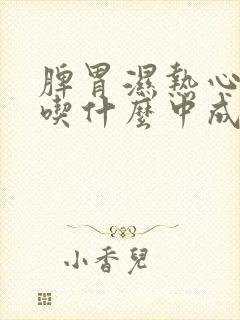 脾胃濕熱心
喫什麼中成
小香兒